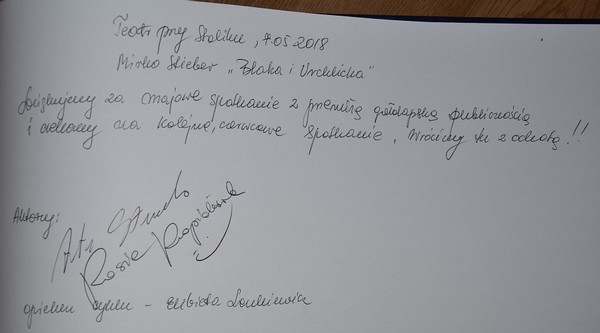 Teatr przy Stoliku, 7.05 2018
Mirko Stieber „Blaka i Vrchlická”
Dziękujemy za majowe spotkanie z premierą gołdapską publicznością
i czekamy na kolejne, czerwcowe spotkanie. Wrócimy tu z ochotą!!
Aktorzy:
Kasia
opiekun cyklu - Elżbieta Łonkiewicz